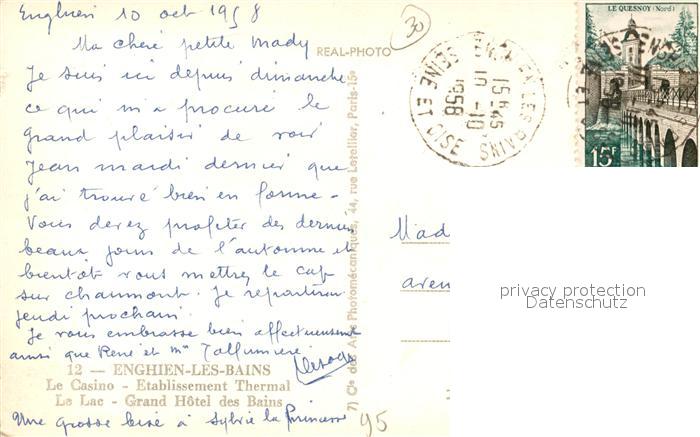 Enghien 10 oct 1958
30
Ma chère petite Mady
REAL-PHOTO
Je suis ici depuis dimanche
ce qui m'a procuré le
grand plaisir de voir
Jean mardi dernier que
j'ai trouvé bien en forme -
Vous devez profiter des derniers
beaux jours de l'automne et
bientôt vous mettrez le cap
sur Chaumont. Je repartirai
jeudi prochain.
Je vous embrasse bien affectueusement
ainsi que René et Mme
12 — ENGHIEN-LES-BAINS
Le Casino - Etablissement Thermal
Le Lac - Grand Hôtel des Bains
Une grosse bise à Sylvie la Princesse
95
7) Cie des Arts Photomécaniques, 44, rue Letellier, Paris-15e
ENGHIEN LES BAINS
15 H45
10 -10
1958
SEINE ET OISE
LE QUESNOY (Nord)
15F
Mad
aven
privacy protection
Datenschutz